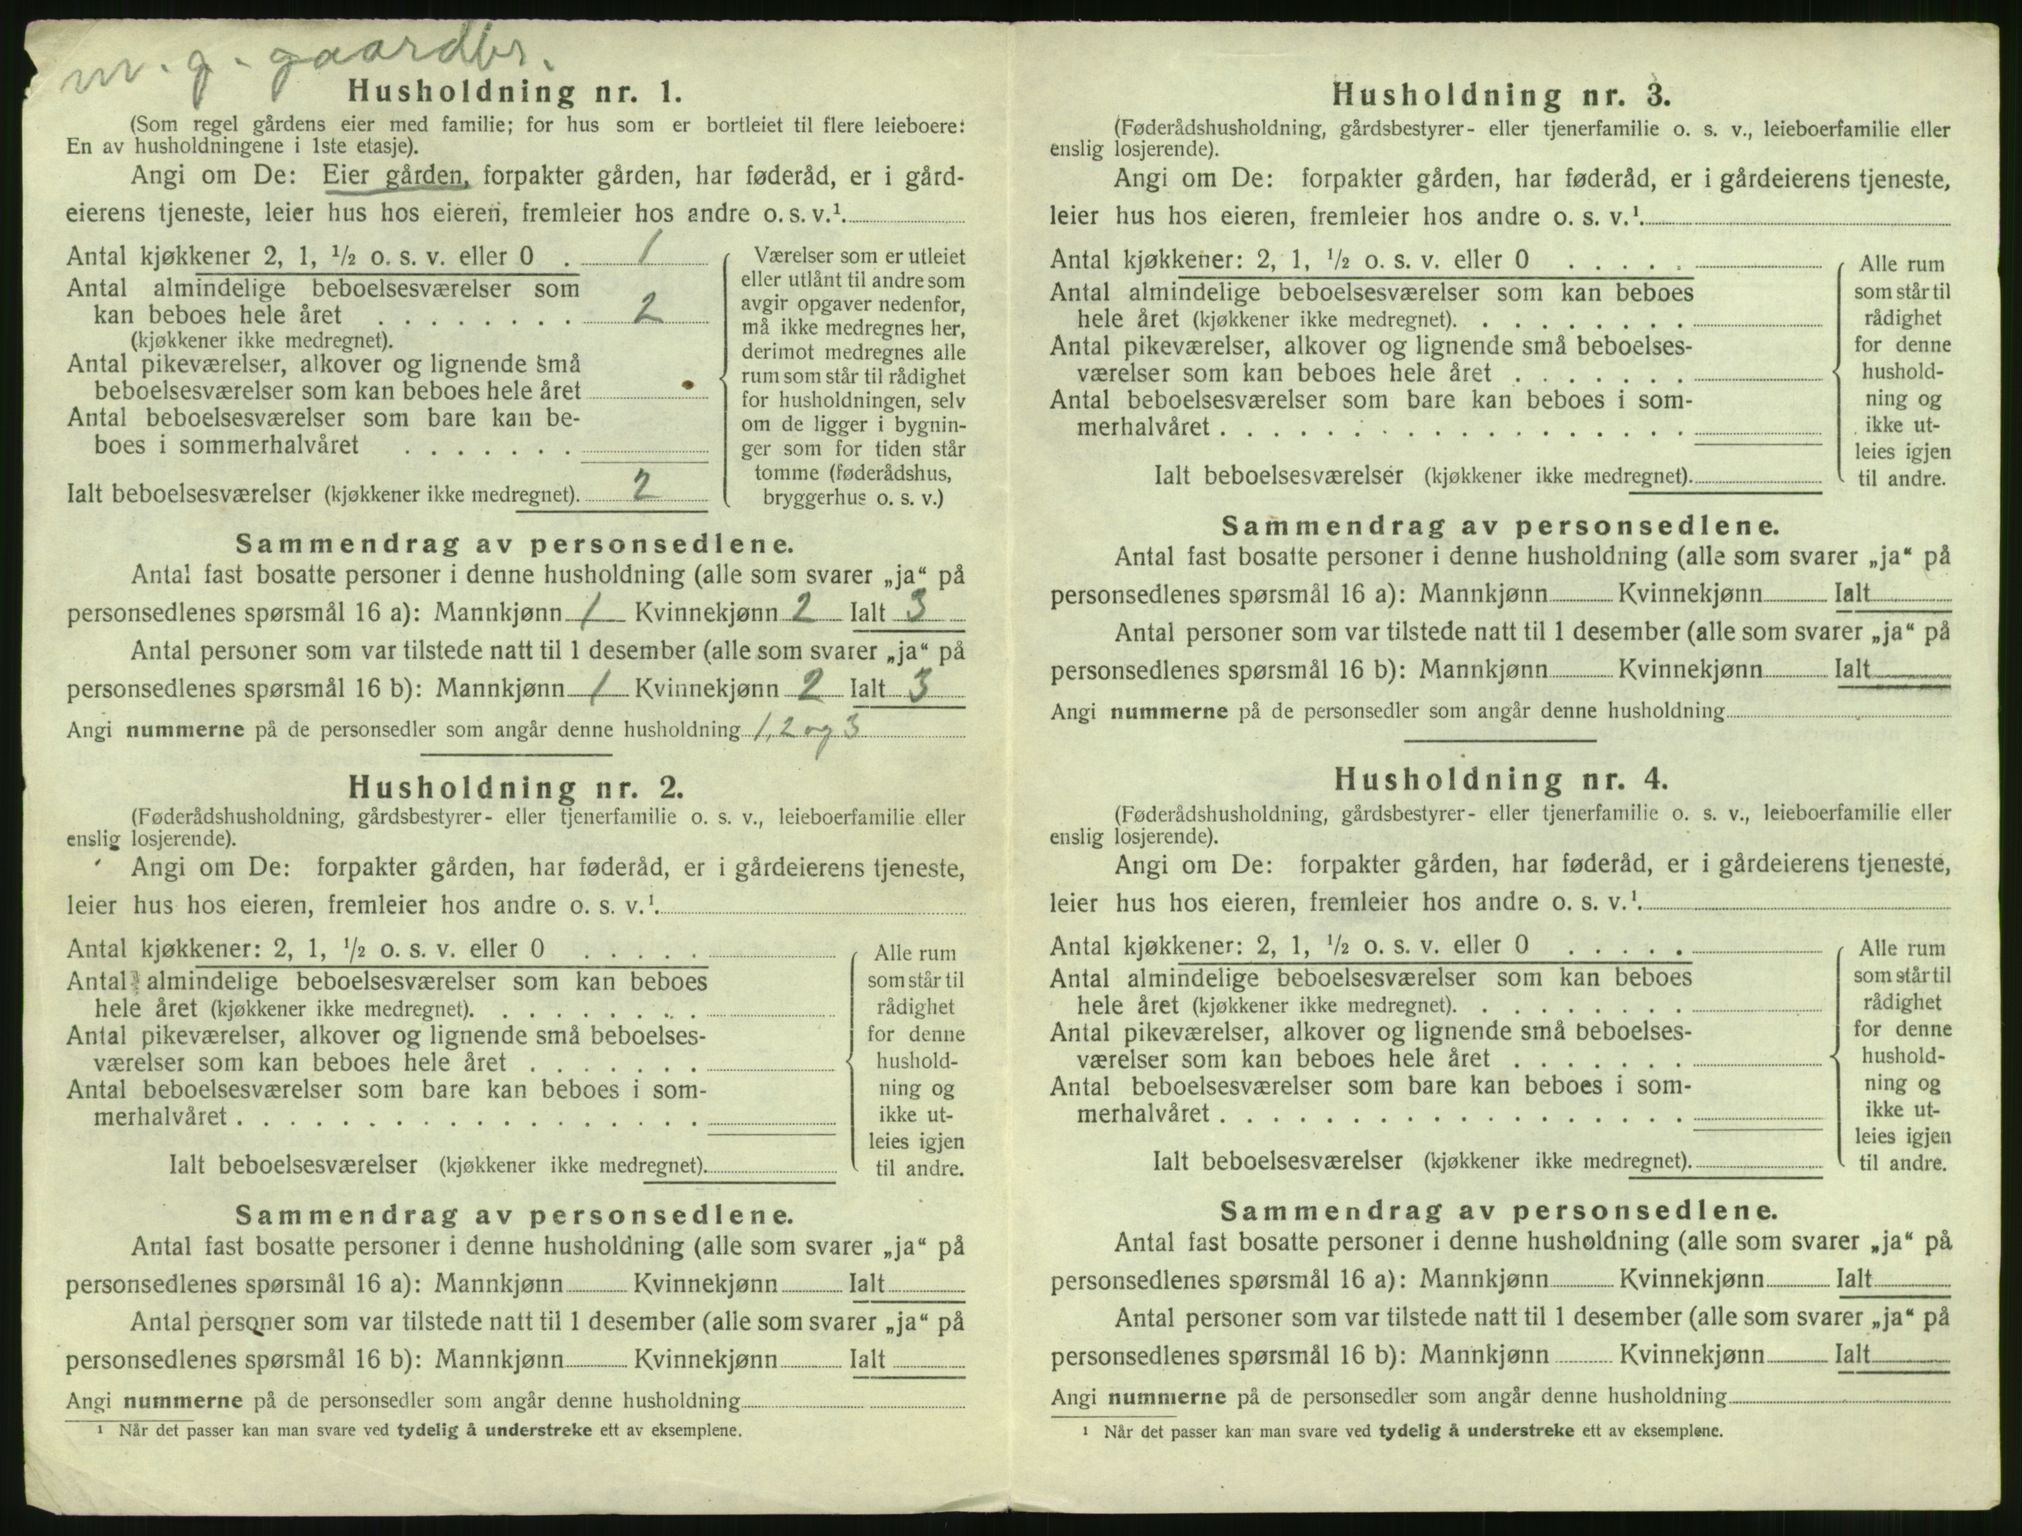 m. g. gaardbr.
Husholdning nr. 1.
(Som regel gårdens eier med familie; for hus som er bortleiet til flere leieboere:
En av husholdningene i 1ste etasje).
Angi om De: Eier gården, forpakter gården, har føderåd, er i gård-
eierens tjeneste, leier hus hos eieren, fremleier hos andre o. s. v.¹.
Antal kjøkkener 2, 1, ½ o. s. v. eller 0 . 1
Antal almindelige beboelsesværelser som
kan beboes hele året . . . . . . . . 2
(kjøkkener ikke medregnet).
Antal pikeværelser, alkover og lignende små
beboelsesværelser som kan beboes hele året
Antal beboelsesværelser som bare kan be-
boes i sommerhalvåret . . . . . . .
Ialt beboelsesværelser (kjøkkener ikke medregnet). 2
Værelser som er utleiet
eller utlånt til andre som
avgir opgaver nedenfor,
må ikke medregnes her,
derimot medregnes alle
rum som står til rådighet
for husholdningen, selv
om de ligger i bygnin-
ger som for tiden står
tomme (føderådshus,
bryggerhus o. s. v.)
Sammendrag av personsedlene.
Antal fast bosatte personer i denne husholdning (alle som svarer „ja“ på
personsedlenes spørsmål 16 a): Mannkjønn 1 Kvinnekjønn 2 Ialt 3
Antal personer som var tilstede natt til 1 desember (alle som svarer „ja“ på
personsedlenes spørsmål 16 b): Mannkjønn 1 Kvinnekjønn 2 Ialt 3
Angi nummerne på de personsedler som angår denne husholdning 1, 2 og 3
Husholdning nr. 2.
(Føderådshusholdning, gårdsbestyrer- eller tjenerfamilie o. s. v., leieboerfamilie eller
enslig losjerende).
Angi om De: forpakter gården, har føderåd, er i gårdeierens tjeneste,
leier hus hos eieren, fremleier hos andre o. s. v.¹.
Antal kjøkkener: 2, 1, ½ o. s. v. eller 0 . . . . .
Antal almindelige beboelsesværelser som kan beboes
hele året (kjøkkener ikke medregnet). . . . . . . . .
Antal pikeværelser, alkover og lignende små beboelses-
værelser som kan beboes hele året . . . . . . .
Antal beboelsesværelser som bare kan beboes i som-
merhalvåret . . . . . . . . . . . . . . . . . .
Ialt beboelsesværelser (kjøkkener ikke medregnet).
Alle rum
som står til
rådighet
for denne
hushold-
ning og
ikke ut-
leies igjen
til andre.
Sammendrag av personsedlene.
Antal fast bosatte personer i denne husholdning (alle som svarer „ja“ på
personsedlenes spørsmål 16 a): Mannkjønn Kvinnekjønn Ialt
Antal personer som var tilstede natt til 1 desember (alle som svarer „ja“ på
personsedlenes spørsmål 16 b): Mannkjønn Kvinnekjønn Ialt
Angi nummerne på de personsedler som angår denne husholdning
¹ Når det passer kan man svare ved tydelig å understreke ett av eksemplene.
Husholdning nr. 3.
(Føderådshusholdning, gårdsbestyrer- eller tjenerfamilie o. s. v., leieboerfamilie eller
enslig losjerende).
Angi om De: forpakter gården, har føderåd, er i gårdeierens tjeneste,
leier hus hos eieren, fremleier hos andre o. s. v.¹.
Antal kjøkkener: 2, 1, ½ o. s. v. eller 0 . . . . .
Antal almindelige beboelsesværelser som kan beboes
hele året (kjøkkener ikke medregnet). . . . . . . . .
Antal pikeværelser, alkover og lignende små beboelses-
værelser som kan beboes hele året . . . . . . .
Antal beboelsesværelser som bare kan beboes i som-
merhalvåret . . . . . . . . . . . . . . . . . .
Ialt beboelsesværelser (kjøkkener ikke medregnet).
Alle rum
som står til
rådighet
for denne
hushold-
ning og
ikke ut-
leies igjen
til andre.
Sammendrag av personsedlene.
Antal fast bosatte personer i denne husholdning (alle som svarer „ja“ på
personsedlenes spørsmål 16 a): Mannkjønn Kvinnekjønn Ialt
Antal personer som var tilstede natt til 1 desember (alle som svarer „ja“ på
personsedlenes spørsmål 16 b): Mannkjønn Kvinnekjønn Ialt
Angi nummerne på de personsedler som angår denne husholdning
Husholdning nr. 4.
(Føderådshusholdning, gårdsbestyrer- eller tjenerfamilie o. s. v., leieboerfamilie eller
enslig losjerende).
Angi om De: forpakter gården, har føderåd, er i gårdeierens tjeneste,
leier hus hos eieren, fremleier hos andre o. s. v.¹.
Antal kjøkkener: 2, 1, ½ o. s. v. eller 0 . . . . .
Antal almindelige beboelsesværelser som kan beboes
hele året (kjøkkener ikke medregnet). . . . . . . . .
Antal pikeværelser, alkover og lignende små beboelses-
værelser som kan beboes hele året . . . . . . .
Antal beboelsesværelser som bare kan beboes i som-
merhalvåret . . . . . . . . . . . . . . . . . .
Ialt beboelsesværelser (kjøkkener ikke medregnet).
Alle rum
som står til
rådighet
for denne
hushold-
ning og
ikke ut-
leies igjen
til andre.
Sammendrag av personsedlene.
Antal fast bosatte personer i denne husholdning (alle som svarer „ja“ på
personsedlenes spørsmål 16 a): Mannkjønn Kvinnekjønn Ialt
Antal personer som var tilstede natt til 1 desember (alle som svarer „ja“ på
personsedlenes spørsmål 16 b): Mannkjønn Kvinnekjønn Ialt
Angi nummerne på de personsedler som angår denne husholdning
¹ Når det passer kan man svare ved tydelig å understreke ett av eksemplene.